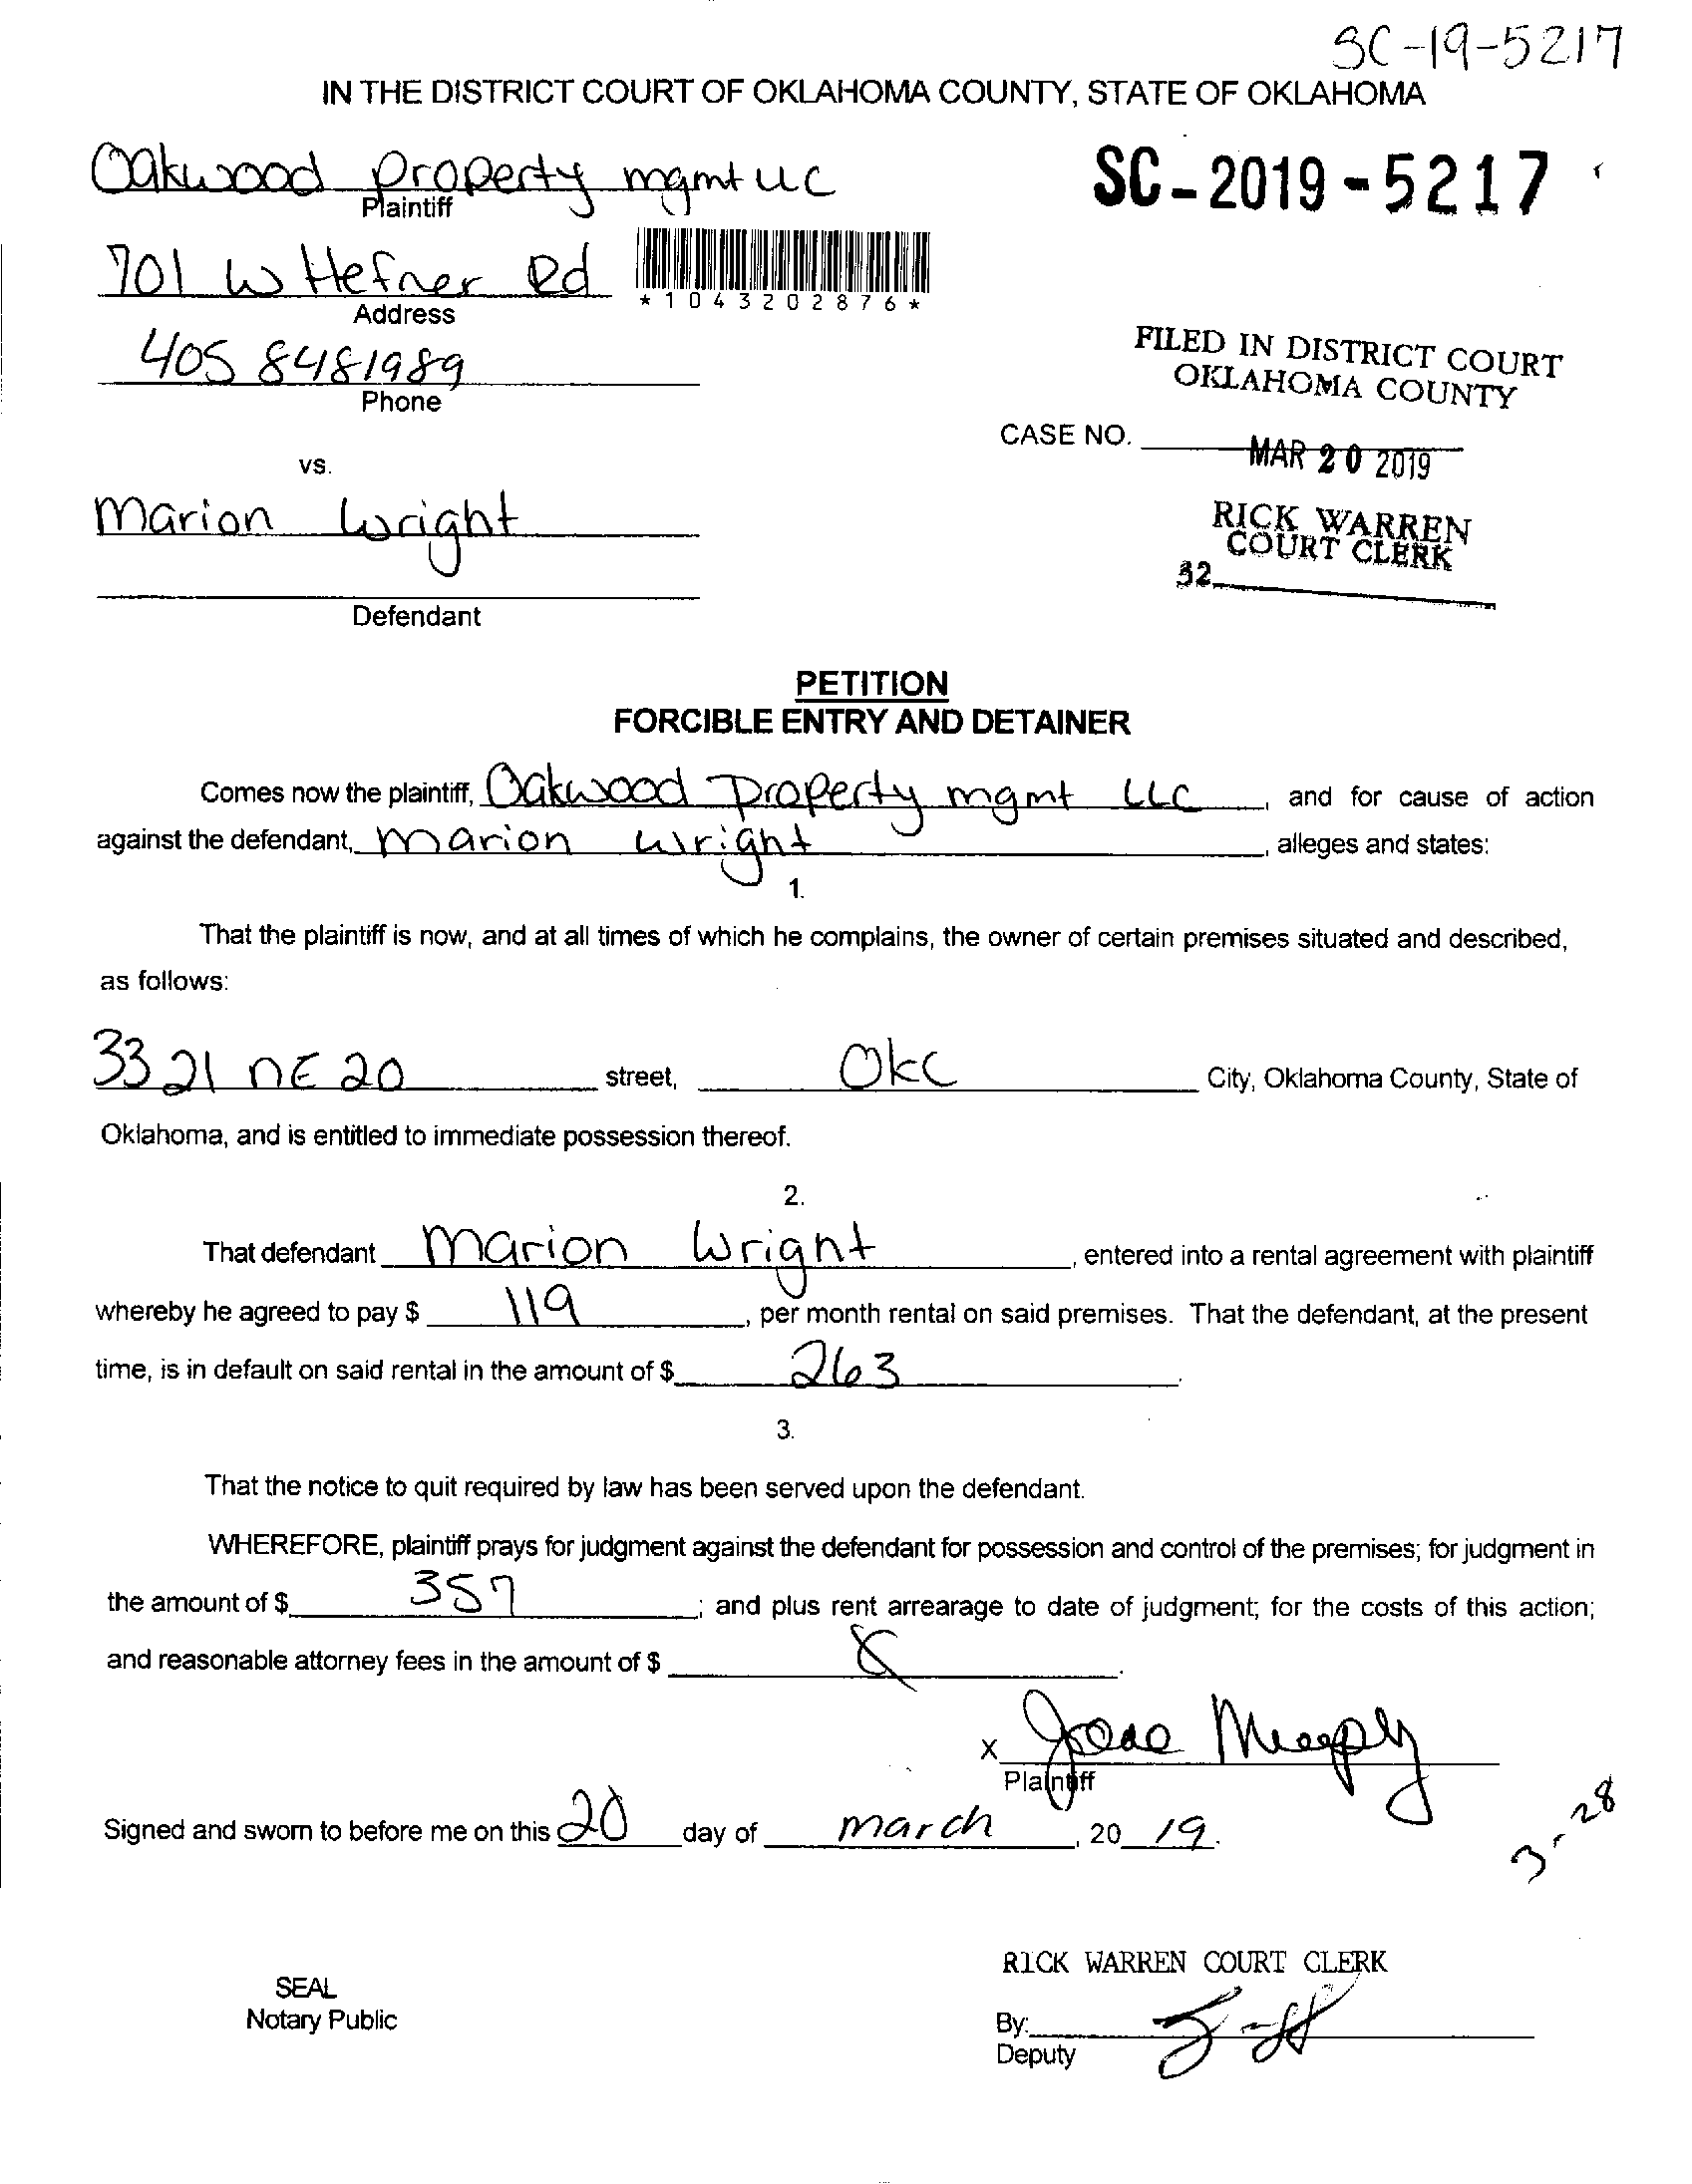 SC-19-5217
IN THE DISTRICT COURT OF OKLAHOMA COUNTY, STATE OF OKLAHOMA
Oakwood Property mgmt LLC
Plaintiff
SC-2019-5217
701 W Hefner Rd
Address
*1043202876*
405 8481989
Phone
FILED IN DISTRICT COURT
OKLAHOMA COUNTY
CASE NO.
MAR 20 2019
vs.
Marion Wright
RICK WARREN
COURT CLERK
32
Defendant
PETITION
FORCIBLE ENTRY AND DETAINER
Comes now the plaintiff, Oakwood Property mgmt LLC, and for cause of action
against the defendant, Marion Wright, alleges and states:
1.
That the plaintiff is now, and at all times of which he complains, the owner of certain premises situated and described,
as follows:
3321 NE 20 street, OKC City, Oklahoma County, State of
Oklahoma, and is entitled to immediate possession thereof.
2.
That defendant Marion Wright, entered into a rental agreement with plaintiff
whereby he agreed to pay $ 119, per month rental on said premises. That the defendant, at the present
time, is in default on said rental in the amount of $ 263.
3.
That the notice to quit required by law has been served upon the defendant.
WHEREFORE, plaintiff prays for judgment against the defendant for possession and control of the premises; for judgment in
the amount of $ 357; and plus rent arrearage to date of judgment; for the costs of this action;
and reasonable attorney fees in the amount of $
X
Plaintiff
Signed and sworn to before me on this 20 day of march, 2019.
3-28
RICK WARREN COURT CLERK
SEAL
Notary Public
By:
Deputy